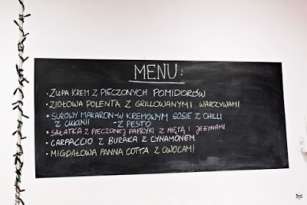 MENU:
• ZUPA KREM Z PIECZONYCH POMIDORÓW
• ZIOŁOWA POLENTA Z GRILLOWANYMI WARZYWAMI
• SUROWY MAKARON W KREMOWYM SOSIE Z CHILLI
Z CUKINII - Z PESTO
• SAŁATKA Z PIECZONEJ PAPRYKI Z MIĘTĄ I JEŻYNAMI
• CARPACCIO Z BURAKA Z CYNAMONEM
• MIGDAŁOWA PANNA COTTA Z OWOCAMI